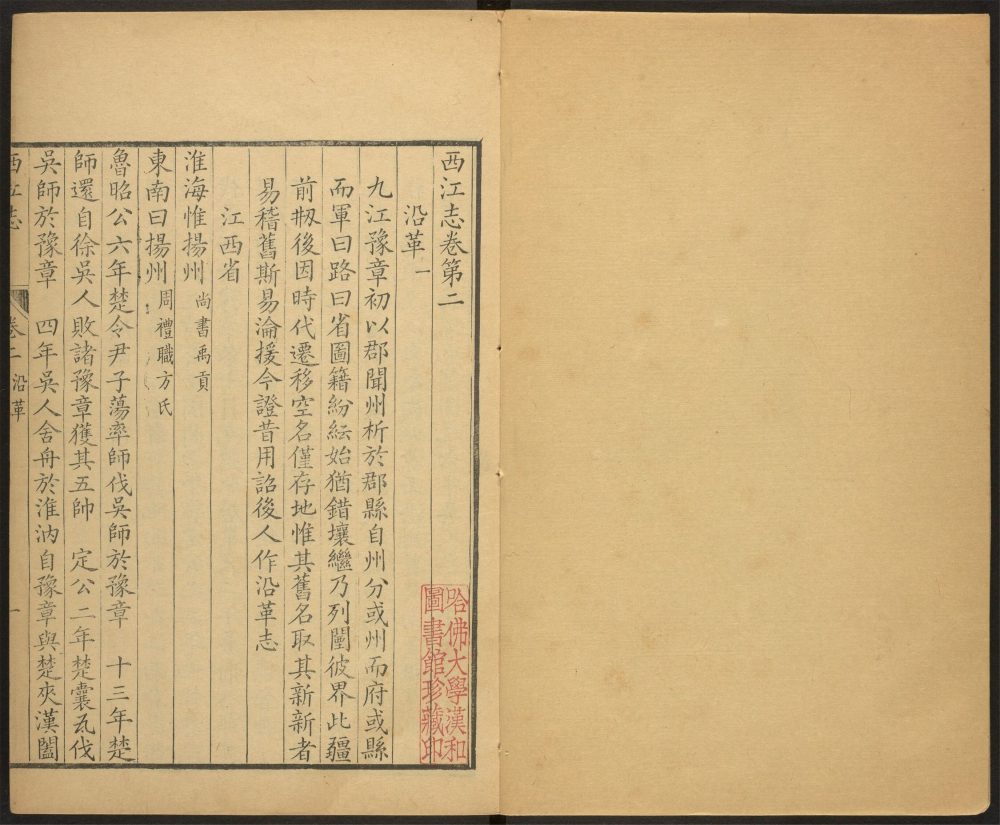 西江志卷第二
沿革一
九江豫章初以郡聞州析於郡縣自州分或州而府或縣
而軍曰路曰省圖籍紛紜始猶錯壤繼乃列圍彼界此疆
前剏後因時代遷移空名僅存地惟其舊名取其新新者
易稽舊斯易淪援今證昔用詔後人作沿革志
江西省
淮海惟揚州尚書禹貢
東南曰揚州周禮職方氏
魯昭公六年楚令尹子蕩率師伐吳師於豫章 十三年楚
師還自徐吳人敗諸豫章獲其五帥 定公二年楚囊瓦伐
吳師於豫章 四年吳人舍舟於淮汭自豫章與楚夾漢闔
西江志
卷二 沿革
一
哈佛大學漢和
圖書館珍藏印